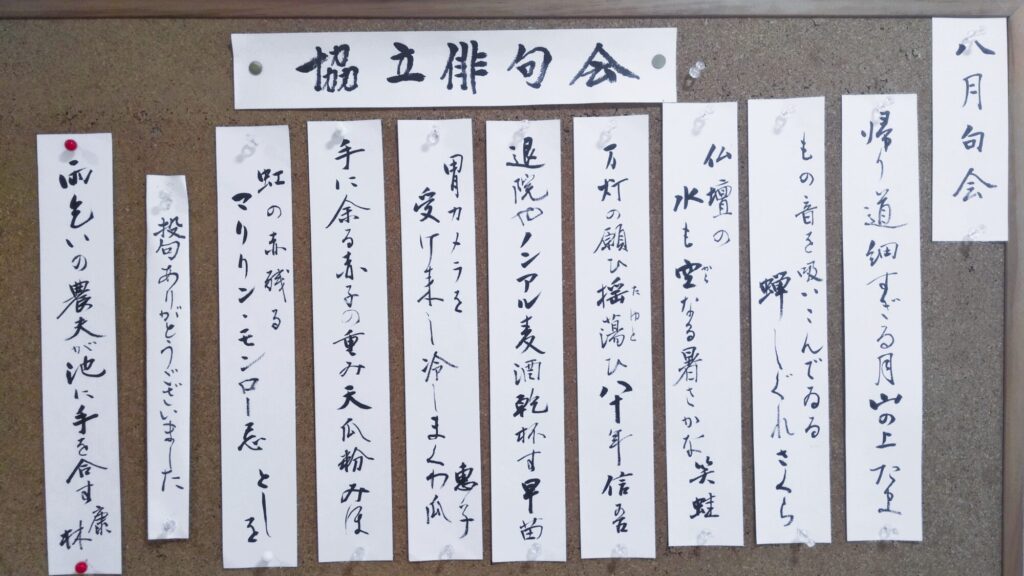 協立俳句会
八月句会
帰り道細すぎる月山の上 たま
もの音を吸いこんでゐる
蝉しぐれ さくら
仏壇の
水も空なる暑さかな 笑蛙
で
万灯の願ひ揺蕩ひ八十年 信吾
たゆと
退院やノンアル麦酒乾杯す 早苗
胃カメラを
受け来し冷しまくわ瓜 恵子
手に余る赤子の重み天瓜粉 みほ
虹の赤残る
マリリン・モンロー忌 としを
投句ありがとうございました
雨乞いの農夫が池に手を合す 康
林